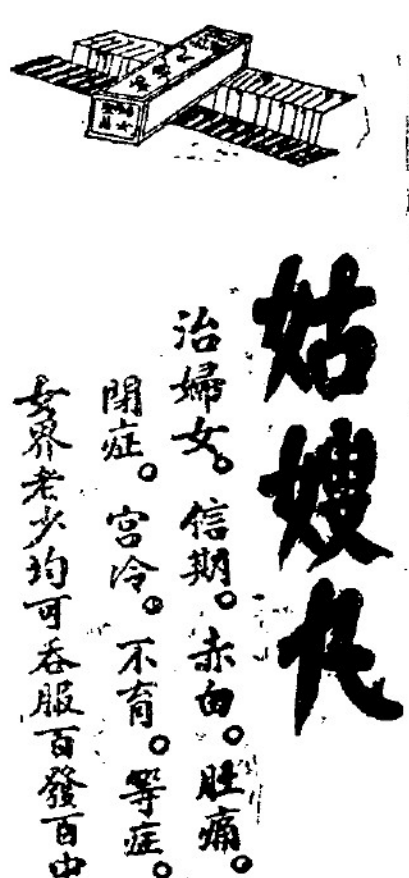 姑嫂丸
治婦女。信期。赤白。肚痛。
閉症。宮冷。不育。等症。
女界老少均可吞服百發百中